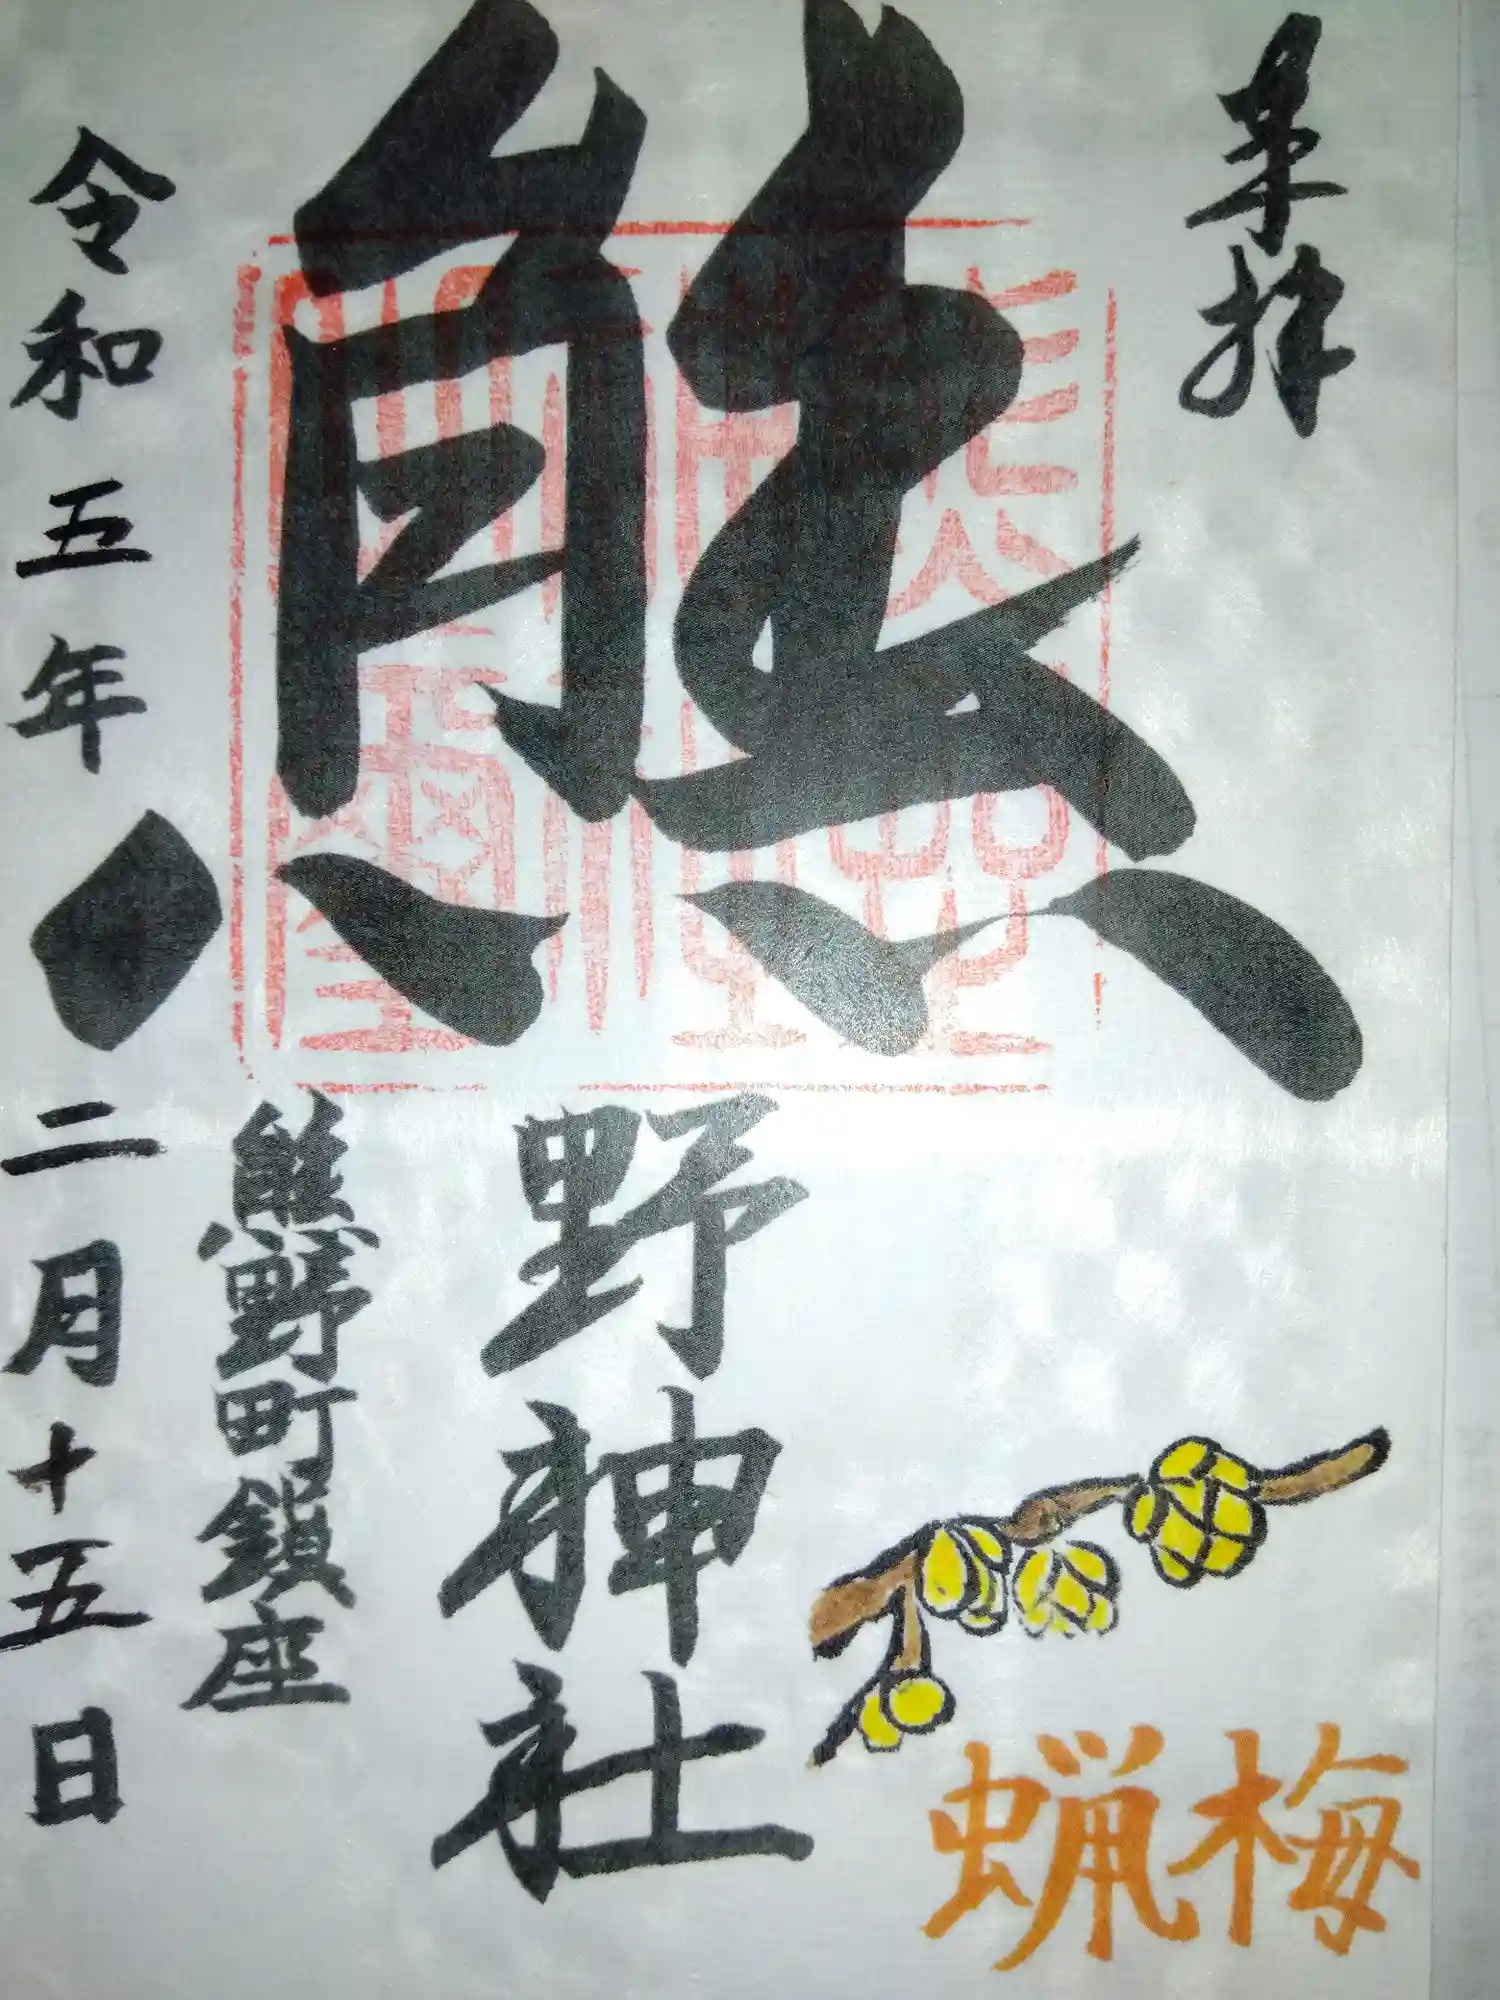 来拝
熊
野神社
熊野町鎮座
令和五年二月十五日
蝋梅